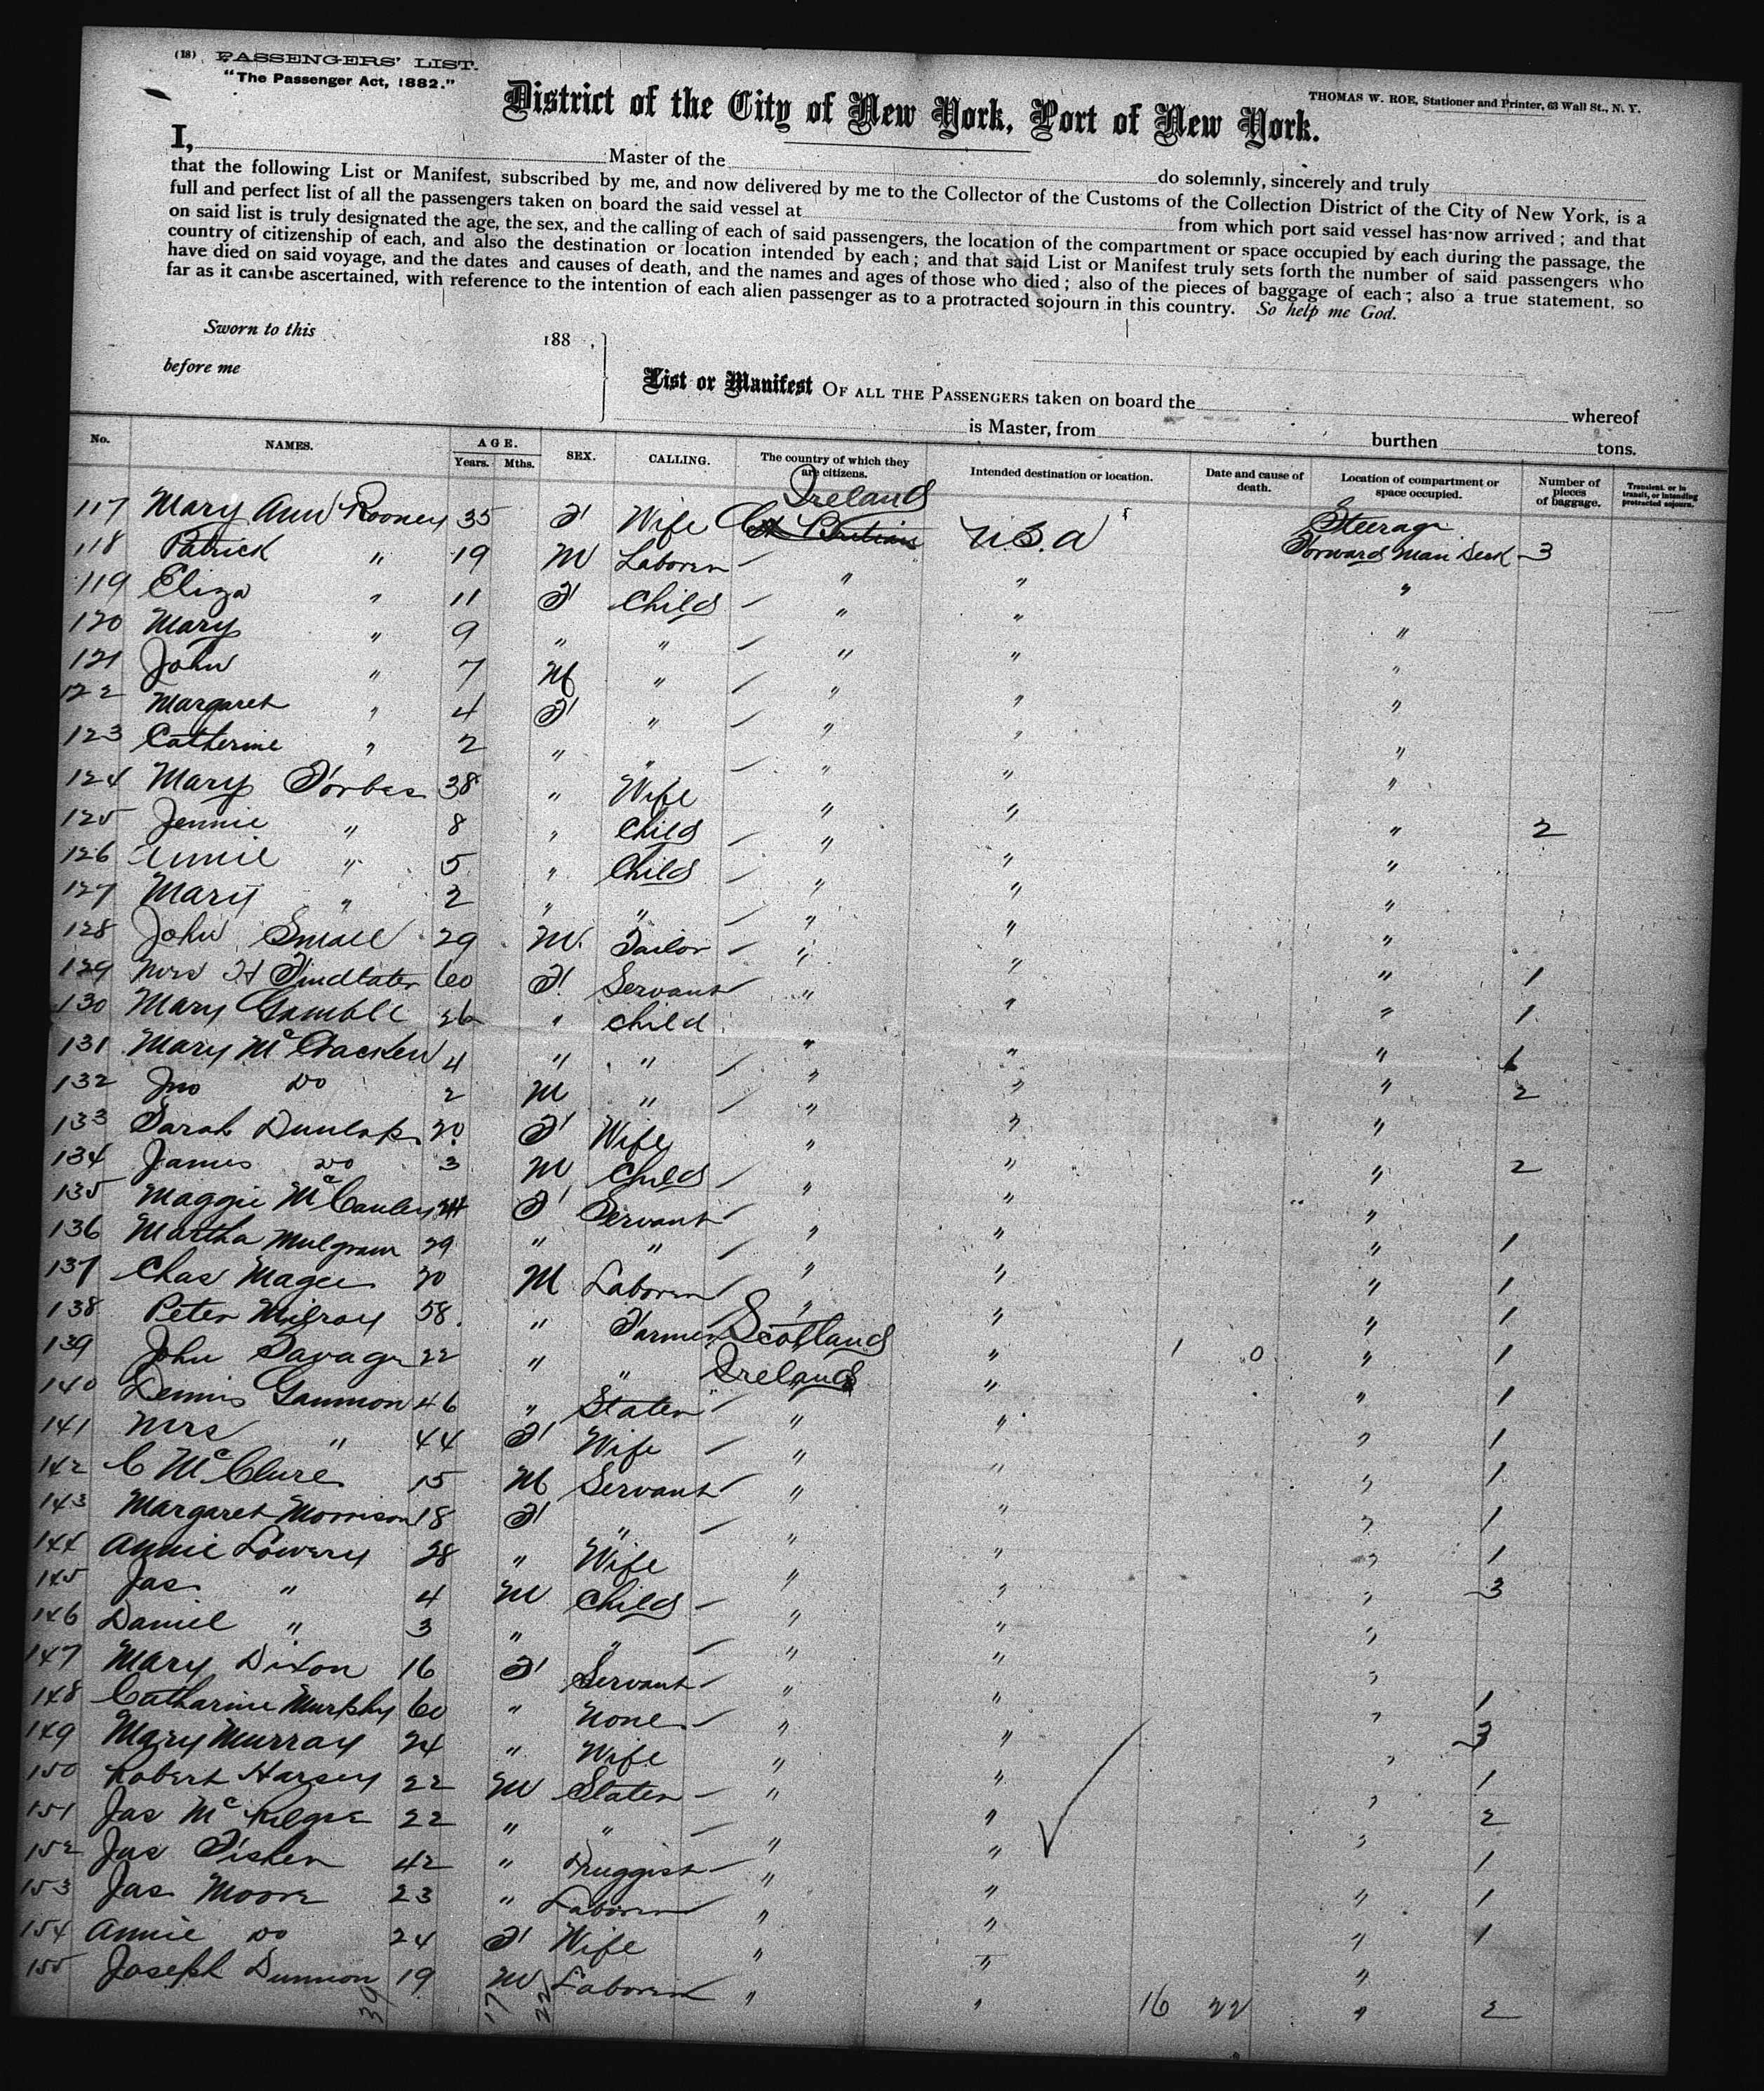 (18) PASSENGERS' LIST.
"The Passenger Act, 1882."
THOMAS W. ROE, Stationer and Printer, 63 Wall St., N. Y.
District of the City of New York, Port of New York.
I, Master of the do solemnly, sincerely and truly
that the following List or Manifest, subscribed by me, and now delivered by me to the Collector of the Customs of the Collection District of the City of New York, is a
full and perfect list of all the passengers taken on board the said vessel at from which port said vessel has now arrived; and that
on said list is truly designated the age, the sex, and the calling of each of said passengers, the location of the compartment or space occupied by each during the passage, the
country of citizenship of each, and also the destination or location intended by each; and that said List or Manifest truly sets forth the number of said passengers who
have died on said voyage, and the dates and causes of death, and the names and ages of those who died; also of the pieces of baggage of each; also a true statement, so
far as it can be ascertained, with reference to the intention of each alien passenger as to a protracted sojourn in this country. So help me God.
Sworn to this 188 ,
before me
List or Manifest OF ALL THE PASSENGERS taken on board the whereof
is Master, from burthen tons.
No. NAMES. AGE. Years. Mths. SEX. CALLING. The country of which they are citizens. Intended destination or location. Date and cause of death. Location of compartment or space occupied. Number of pieces of baggage. Transient, or in transit, or intending protracted sojourn.
117 Mary Ann Rooney 35 F Wife Ireland U.S.A Steerage
118 Patrick " 19 M Laborer " " Forward Main Deck 3
119 Eliza " 11 F Child " " "
120 Mary " 9 " " " " "
121 John " 7 M " " " "
122 Margaret " 4 F " " " "
123 Catherine " 2 " " " " "
124 Mary Forbes 38 " Wife " " "
125 Jennie " 8 " Child " " " 2
126 Annie " 5 " Child " " "
127 Mary " 2 " " " " "
128 John Small 29 M Tailor " " "
129 Mrs H Findlater 60 F Servant " " " 1
130 Mary Gamble 26 " Child " " " 1
131 Mary McCracken 4 " " " " " 1
132 Jno Do 2 M " " " " 2
133 Sarah Dunlop 20 F Wife " " "
134 James Do 3 M Child " " " 2
135 Maggie McCauley 24 F Servant " " "
136 Martha 29 " " " " " 1
137 Chas Magee 20 M Laborer " " " 1
138 Peter Milroy 58 " Farmer Scotland " " 1
139 John Savage 22 " " Ireland " 1 0 " 1
140 Dennis Gammon 46 " Slater " " " 1
141 Mrs " 44 F Wife " " " 1
142 C McClure 15 M Servant " " " 1
143 Margaret Morrison 18 F " " " " 1
144 Annie Lowery 28 " Wife " " " 1
145 Jas " 4 M Child " " " 3
146 Daniel " 3 " " " " "
147 Mary Dixon 16 F Servant " " "
148 Catharine Murphy 60 " None " " " 1
149 Mary Murray 24 " Wife " " " 3
150 Robert Harsey 22 M Slater " " " 1
151 Jas 22 " " " " " 2
152 Jas Fisher 42 " Druggist " " 1
153 Jas Moore 23 " Laborer " " " 1
154 Annie Do 24 F Wife " " " 1
155 Joseph Dunnon 19 M Laborer " " 16 22 " 2
39 17 22